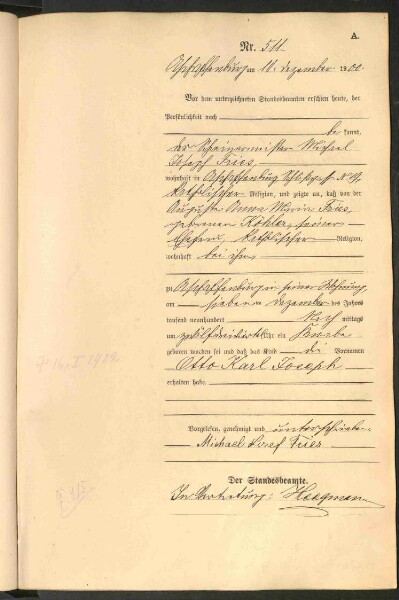 A.
Nr. 511.
Aschaffenburg am 11. Dezember 1900.
Vor dem unterzeichneten Standesbeamten erschien heute, der
Persönlichkeit nach
be kannt,
der Schreinermeister Michael
Joseph Fries,
wohnhaft in Aschaffenburg
katholischer Religion, und zeigte an, daß von der
Augusta Anna Maria Fries,
geborenen Köhler, seiner
Ehefrau, katholischer Religion,
wohnhaft bei ihm
zu Aschaffenburg in seiner Wohnung,
am siebenten Dezember des Jahres
tausend neunhundert Nach mittags
um Uhr ein Knabe
geboren worden sei und daß das Kind die Vornamen
Otto Karl Joseph
erhalten habe.
Vorgelesen, genehmigt und unterschrieben
Michael Josef Fries
Der Standesbeamte.
In Vertretung: